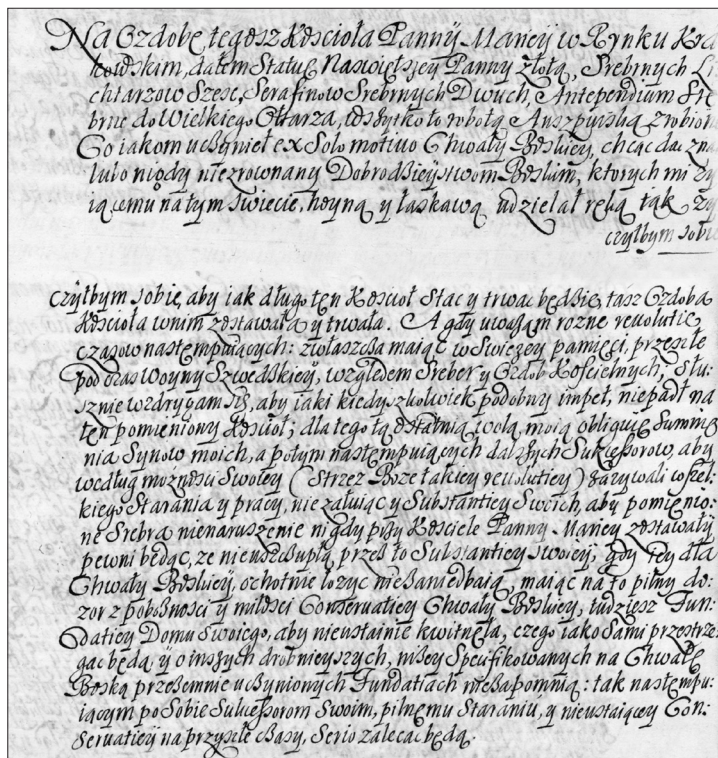 Na Ozdobę tegosz Kościoła Panny Maryey w Rynku Kra
kowskim, dałem Statuę Naswięższey Panny złotą, Srebrnych Li
chtarzow Szesc, Serafinow Srebrnych Dwuch, Antependium Sre
brne do Wielkiego Ołtarza, to wszytko robotą Auszpurską zrobion
Co iakom uczynieł ex Solo motivo Chwały Boskiey, chcąc dac zna
lubo nigdy niezrownany Dobrodzieystwom Boskim, ktorych mi ży
iącemu na tym swiecie, hoyną y łaskawą udzielał ręką tak ży
czyłbym sobie
czyłbym sobie, aby iak długo ten Kościoł Stac y trwac będzie, tasz Ozdoba
Kościoła w nim zostawała y trwała. A gdy uwazam rozne revolutie
czasow nastempuiących: zwłaszcza maiąc w Swiezey pamięci, przeszłe
pod czas Woyny Szwedzkiey, względem Sreber y Ozdob Kościelnych, Słu-
sznie wzdrygam się, aby iaki kiedyszkolwiek podobny impet, niepadł na
ten pomieniony Kościoł; dla tego tą ostatnią wolą moią obliguię Sumnie
nia Synow moich, a potym nastempuiących dalszych Sukcessorow, aby
według moznosci Swoiey (Strzez Boze takiey revolutiey) zazywali wszel-
kiego Starania y pracy, nie załuiąc y Substantiey Swoich, aby pomienio-
ne Srebra nienaruszenie nigdy przy Kościele Panny Maryey zostawały
pewni będąc, ze nieuszczuplą przez to Substantiey swoiey, gdy iey dla
Chwały Boskiey, ochotnie łozyc niezaniedbaią, maiąc na to pilny do-
zor z poboznosci y miłosci Conservatiey Chwały Boskiey, tudziesz Fun-
datiey Domu Swoiego, aby nieustainie kwitnęła, czego iako Sami przestrze-
gac będą, y o inszych drobnieyszych, nizey Specifikowanych na Chwałę
Boską przezemnie uczynionych Fundatiach niezapomnią: tak nastempu-
iącym po Sobie Sukcessorom Swoim, pilnemu Staraniu, y nieustaiącey Con-
servatiey na przyszłe czasy, Serio zalecac będą.